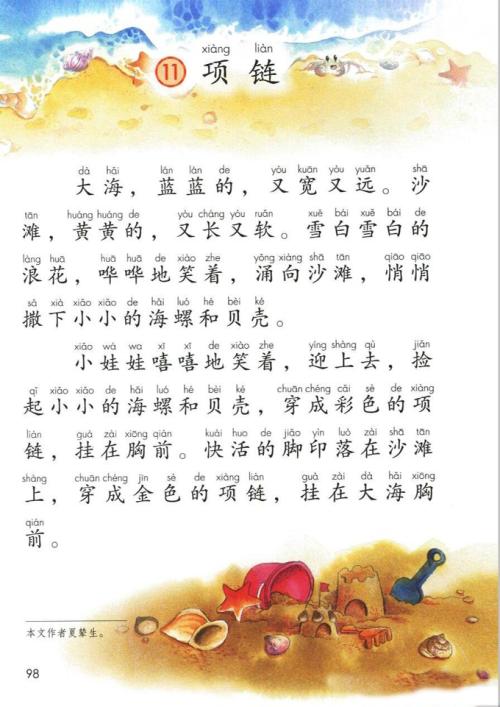 xiàng liàn
11 项链
dà hǎi lán lán de yòu kuān yòu yuǎn shā
大海，蓝蓝的，又宽又远。沙
tān huáng huáng de yòu cháng yòu ruǎn xuě bái xuě bái de
滩，黄黄的，又长又软。雪白雪白的
làng huā huā huā de xiào zhe yǒng xiàng shā tān qiāo qiāo
浪花，哗哗地笑着，涌向沙滩，悄悄
sǎ xià xiǎo xiǎo de hǎi luó hé bèi ké
撒下小小的海螺和贝壳。
xiǎo wá wa xī xī de xiào zhe yíng shàng qù jiǎn
小娃娃嘻嘻地笑着，迎上去，捡
qǐ xiǎo xiǎo de hǎi luó hé bèi ké chuān chéng cǎi sè de xiàng
起小小的海螺和贝壳，穿成彩色的项
liàn guà zài xiōng qián kuài huo de jiǎo yìn luò zài shā tān
链，挂在胸前。快活的脚印落在沙滩
shàng chuān chéng jīn sè de xiàng liàn guà zài dà hǎi xiōng
上，穿成金色的项链，挂在大海胸
qián
前。
本文作者夏辇生。
98